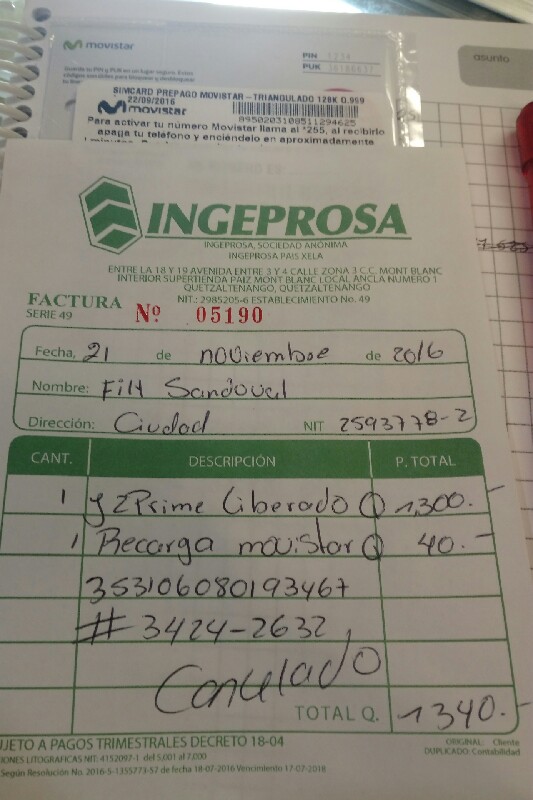 movistar
PIN 1234
PUK
asunto
SIMCARD PREPAGO MOVISTAR - TRIANGULADO 128K Q.959
22/09/2016
movistar
8950203108511294625
Para activar tu número Movistar llama al *255, al recibirlo
apaga tu teléfono y enciéndelo en aproximadamente
INGEPROSA
INGEPROSA, SOCIEDAD ANÓNIMA
INGEPROSA PAIS XELA
ENTRE LA 18 Y 19 AVENIDA ENTRE 3 Y 4 CALLE ZONA 3 C.C. MONT BLANC
INTERIOR SUPERTIENDA PAIZ MONT BLANC LOCAL ANCLA NÚMERO 1
QUETZALTENANGO, QUETZALTENANGO
NIT.: 2985205-6 ESTABLECIMIENTO No. 49
FACTURA
SERIE 49
Nº 05190
Fecha, 21 de noviembre de 2016
Nombre: Fily Sandoval
Dirección: Ciudad NIT 2593778-2
CANT. DESCRIPCIÓN P. TOTAL
1 J2 Prime Liberado Q 1,300.-
1 Recarga movistar Q 40.-
353106080193467
# 3424-2632
Cancelado
TOTAL Q. 1340.-
UJETO A PAGOS TRIMESTRALES DECRETO 18-04
ORIGINAL: Cliente
DUPLICADO: Contabilidad
IONES LITOGRAFICAS NIT: 4152097-1 del 5,001 al 7,000
Según Resolución No. 2016-5-1355773-57 de fecha 18-07-2016 Vencimiento 17-07-2018